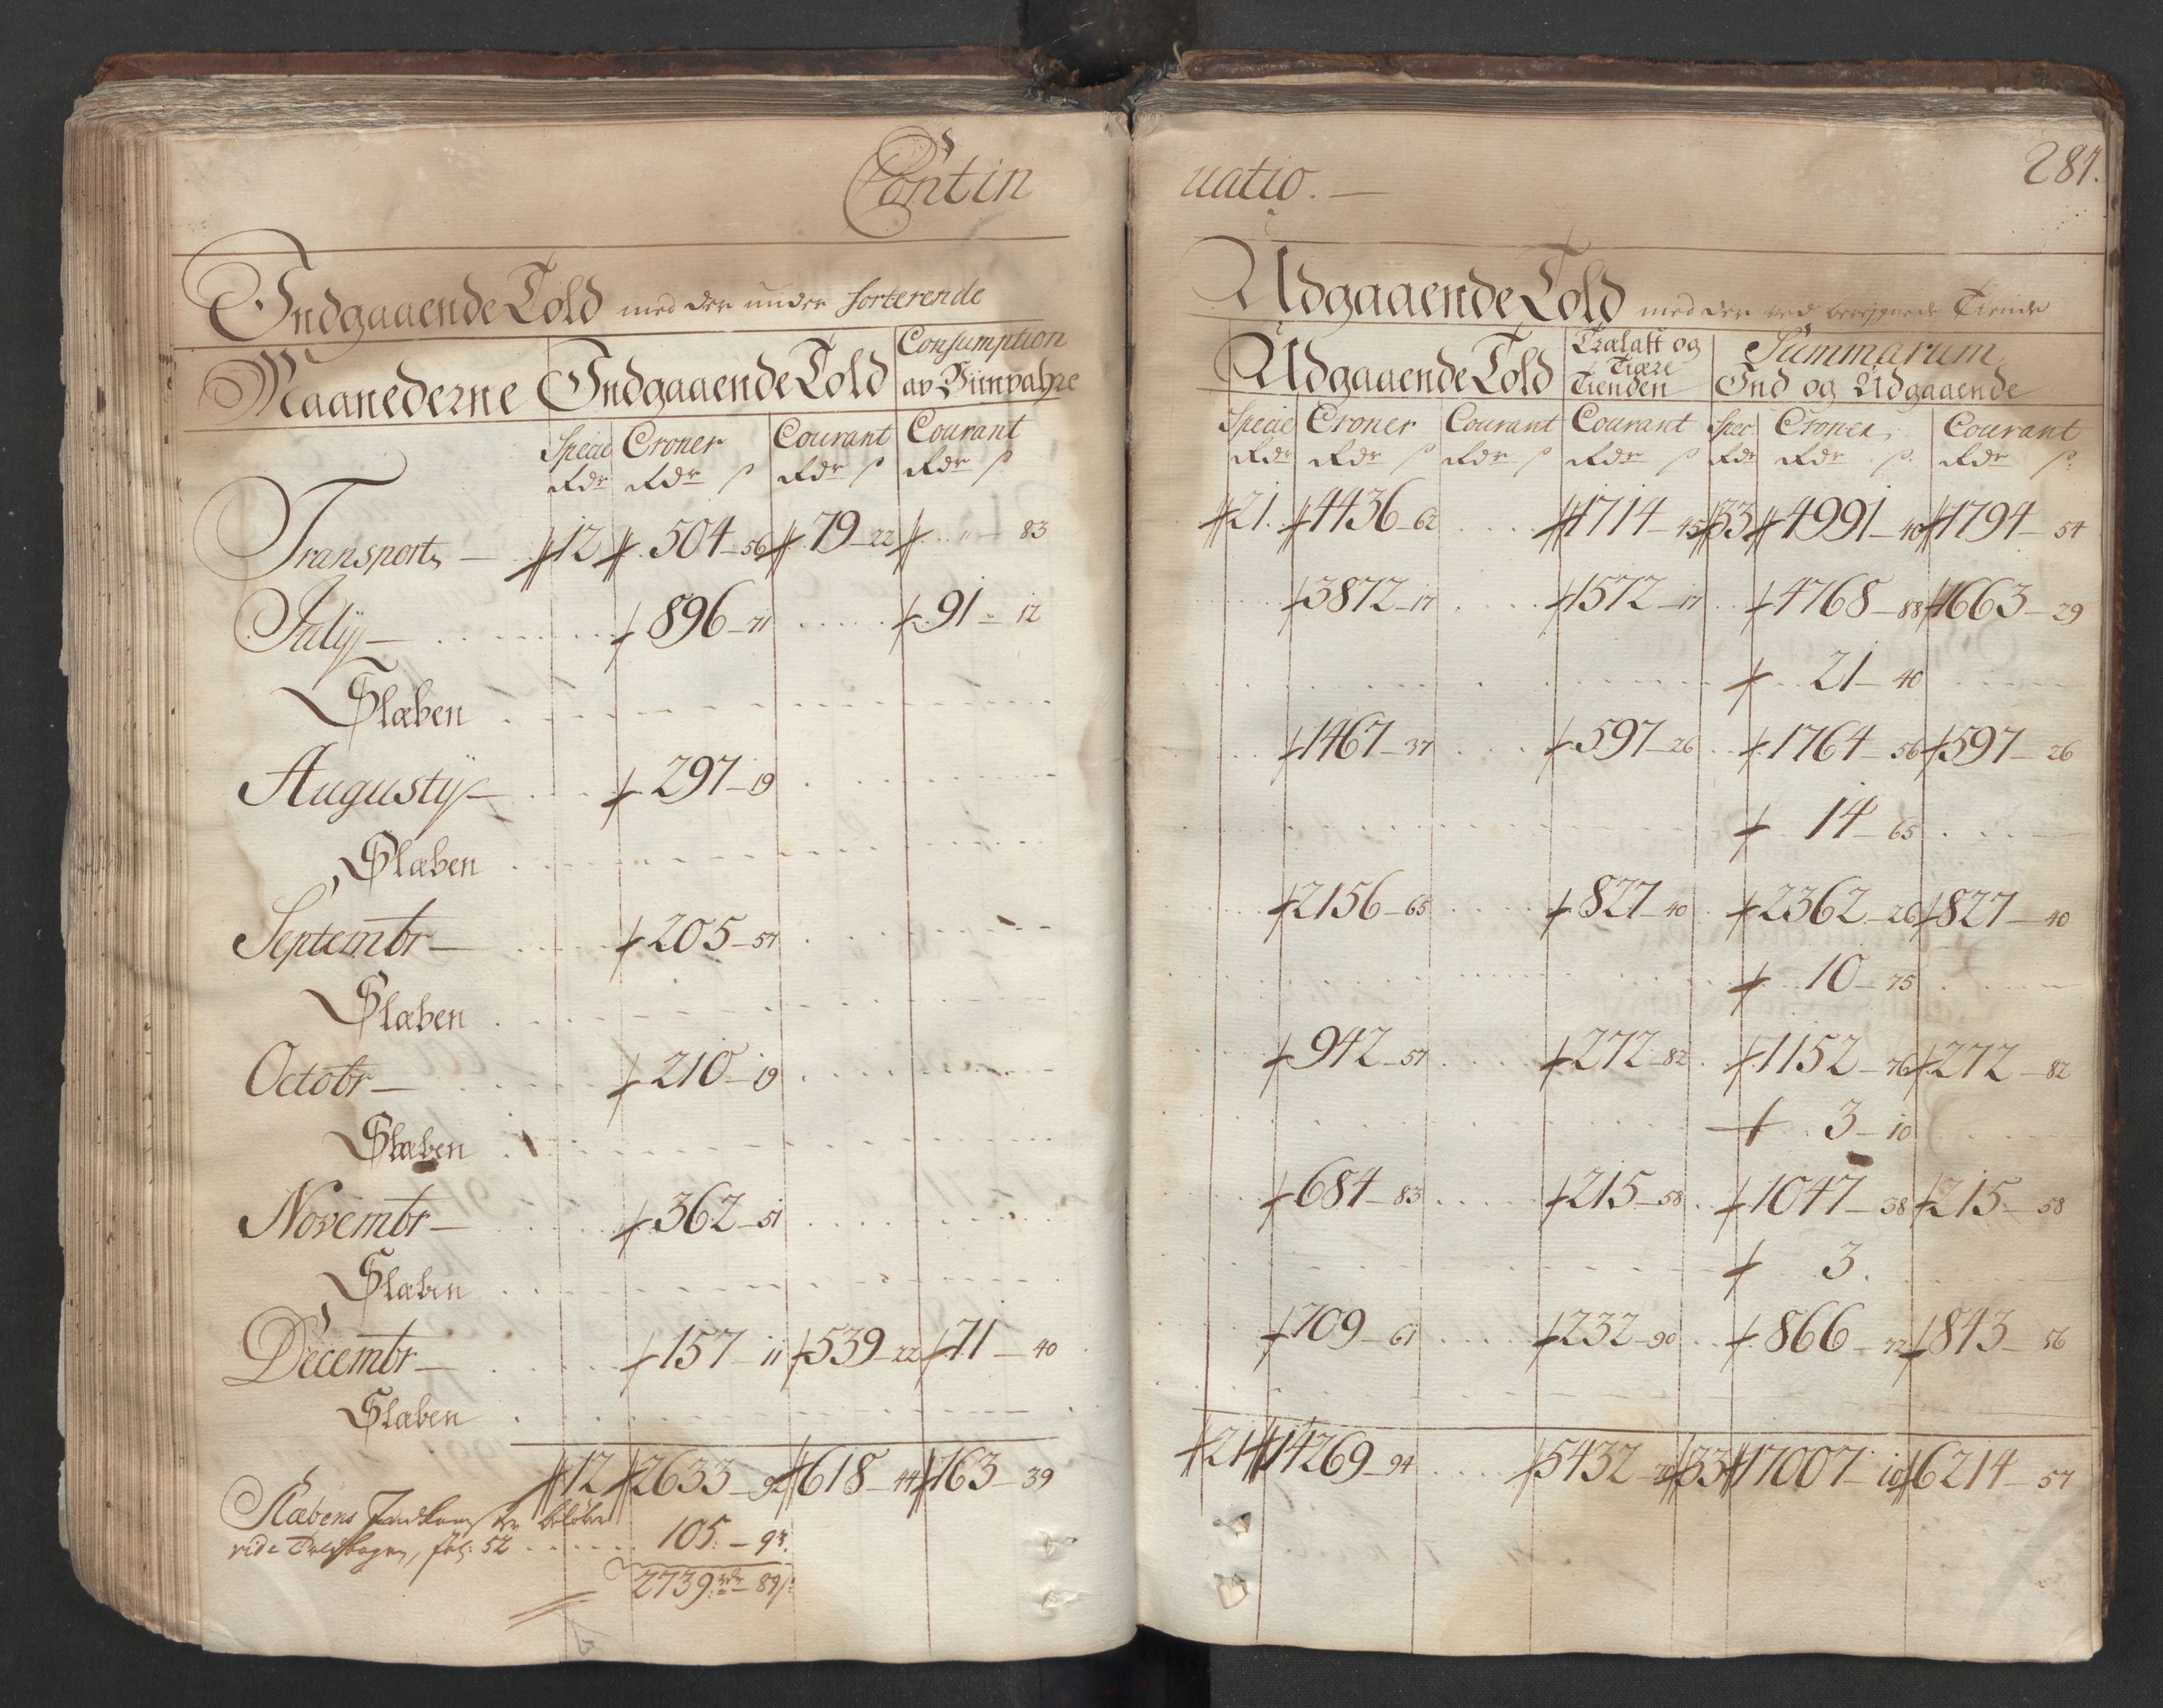 Contin
Indgaaende Told med der under Sorterende
Maanederne Indgaaende Told Consumption av
Specie Croner Courant Courant
Rdr Rdr ß Rdr ß Rdr ß
Transporte — 12 504-56 79-22 " - 83
July — 896-71 91 - 12
Slæben
Augusty — 297-19
Slæben
Septembr — 205-57
Slæben
Octobr — 210-19
Slæben
Novembr — 362-51
Slæben
Decembr — 157-11 539-22 71-40
Slæben
12 2633-92 618-44 163-39
Slæbens beløber
vide fol: 52 105 - 93.
2739 rdr 89 ß
uatio. —
287.
Udgaaende Told med der ved Tiende
Udgaaende Told Trælast og Tiære Tienden Summarum Ind og Udgaaende
Specie Croner Courant Courant Spec. Croner Courant
Rdr Rdr ß Rdr ß Rdr ß Rdr Rdr ß Rdr ß
21. 4436-62 1714-45 33 4991-40 1794-54
3872-17 1572-17 4768-88 1663-29
21-40
1467-37 597-26 1764-56 597-26
14-65
2156-65 827-40 2362-26 827-40
10-75
942-57 272-82 1152-76 272-82
3-10
684-83 215-58 1047-38 215-58
3.
709-61 232-90 866-72 843-56
21 14269-94 5432-70 33 17007-10 6214-57